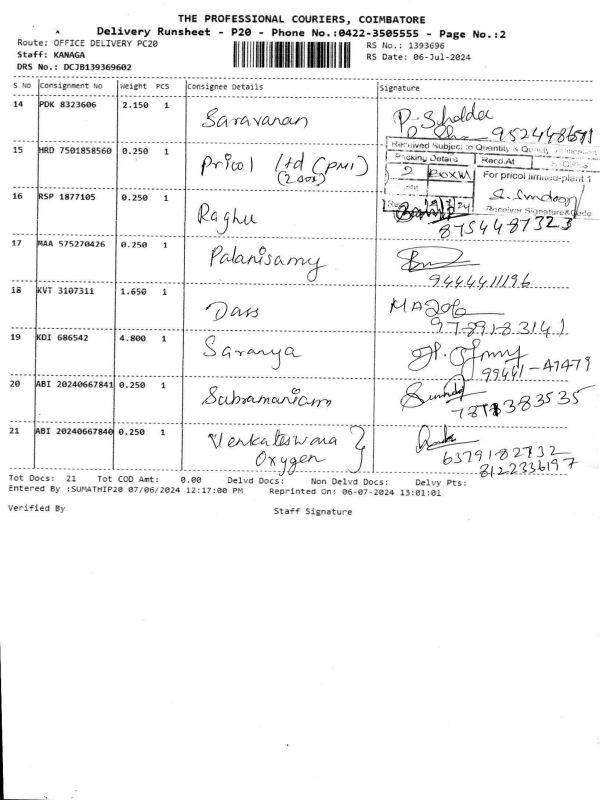 THE PROFESSIONAL COURIERS, COIMBATORE
Delivery Runsheet - P20 - Phone No.:0422-3505555 - Page No.:2
Route: OFFICE DELIVERY PC20
RS No.: 1393696
Staff: KANAGA
RS Date: 06-Jul-2024
DRS No.: DCJB139369602
S No Consignment No Weight PCS Consignee Details Signature
14 PDK 8323606 2.150 1 Saravanan
15 HRD 7501858560 0.250 1 Pricol ltd (PM1)
Received Subject to Quantity & Quality
Packing Details Recd.At
2 BOX
For pricol limited-plant 1
Receiver Signature&Code
16 RSP 1877105 0.250 1 Raghu
8754487323
17 MAA 575270426 0.250 1 Palanisamy
9444411196
18 KVT 3107311 1.650 1 Dass
9789183141
19 KDI 686542 4.800 1 Saranya
99441-47479
20 ABI 20240667841 0.250 1 Subramaniam
383535
21 ABI 20240667840 0.250 1 Venkateswara
Oxygen
6379182732
8122336197
Tot Docs: 21 Tot COD Amt: 0.00 Delvd Docs: Non Delvd Docs: Delvy Pts:
Entered By :SUMATHIP20 07/06/2024 12:17:00 PM Reprinted On: 06-07-2024 13:01:01
Verified By Staff Signature